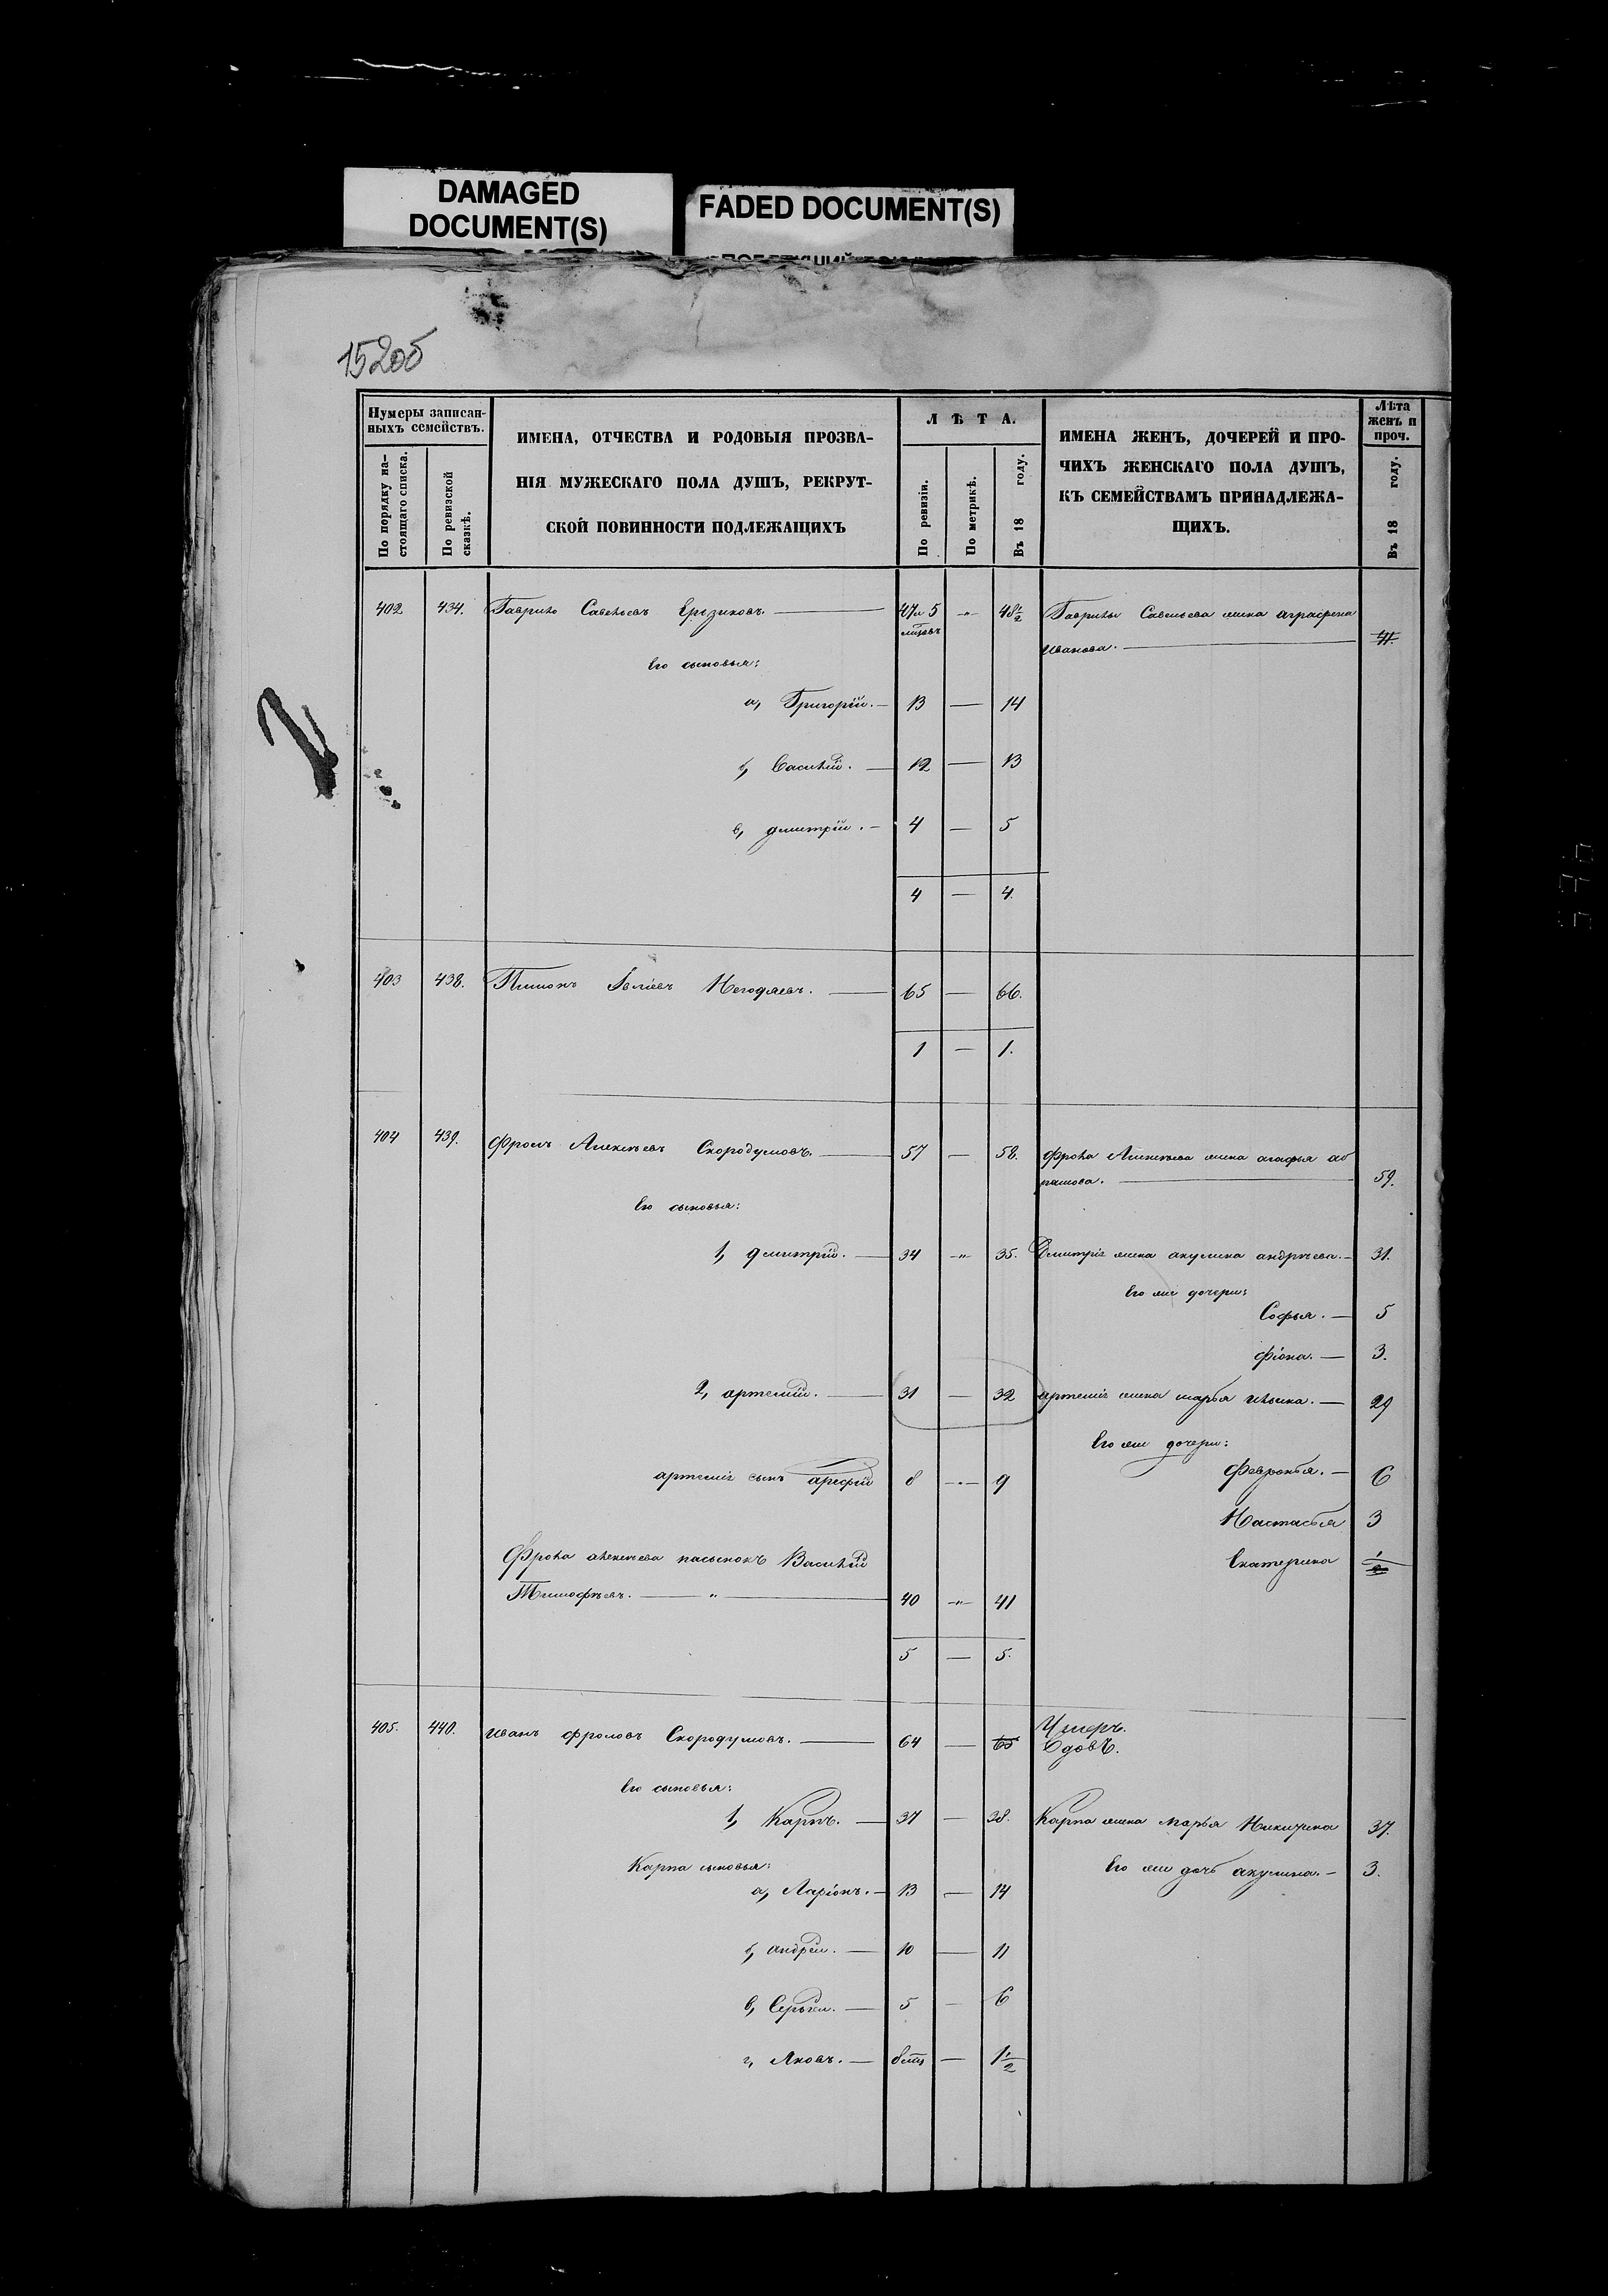 DAMAGED
DOCUMENT(S)
FADED DOCUMENT(S)
152об
Нумеры записан-
ныхъ семействъ.
По порядку на-
стоящаго списка.
По ревизской
сказкѣ.
ИМЕНА, ОТЧЕСТВА И РОДОВЫЯ ПРОЗВА-
НІЯ МУЖЕСКАГО ПОЛА ДУШЪ, РЕКРУТ-
СКОЙ ПОВИННОСТИ ПОДЛЕЖАЩИХЪ
ЛѢТА.
По ревизіи.
По метрикѣ.
Въ 18 году.
ИМЕНА ЖЕНЪ, ДОЧЕРЕЙ И ПРО-
ЧИХЪ ЖЕНСКАГО ПОЛА ДУШЪ,
КЪ СЕМЕЙСТВАМЪ ПРИНАДЛЕЖА-
ЩИХЪ.
Лѣта
женъ и
проч.
Въ 18 году.
402 434. Гаврило Савельевъ — 47 и 5 „ 48½ Гаврилы Савельева жена аграфена
мѣсяцъ
иванова. — 41.
Его сыновья:
а, Григорій. — 13 — 14
б, Василій. — 12 — 13
в, дмитрій. — 4 — 5
4 — 4.
403 438. — 65 — 66.
1 — 1.
404 439. Фролъ Алексѣевъ Скородумовъ. — 57 — 58. Фрола Алексѣева жена агафья аб
рамова. — 59.
Его сыновья:
1, дмитрій. — 34 -„- 35. Дмитрія жена акулина андрѣева. — 31.
Его же дочери:
Софья. — 5
фіона. — 3.
2, артемій. — 31 — 32 артемія жена марья ильина. — 29
Его же дочери:
артемія сынъ арефій 8 — 9 Февронья. — 6
Настасья 3
Фрола алексѣева пасынокъ Василій Екатерина ½
Тимофѣевъ. — „ — 40 -„- 41
5 — 5.
405. 440. иванъ фроловъ Скородумовъ. — 64 — 65 Умеръ.
Вдовъ.
Его сыновья:
1, Карпъ. — 37 — 38. Карпа жена марья Никитина 37.
Карпа сыновья: Его же дочь акулина. — 3.
а, Ларіонъ. — 13 — 14
б, андрей. — 10 — 11
в, Сергѣй. — 5 — 6
г, Яковъ. — — 1½